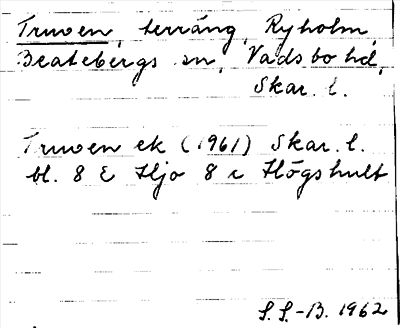 Truven, terräng, Ryholm,
Beatebergs sn, Vadsbo hd,
Skar. l.
Truven ek (1961) Skar. l.
bl. 8 E Hjo 8 c Högshult
S.S.-B. 1962